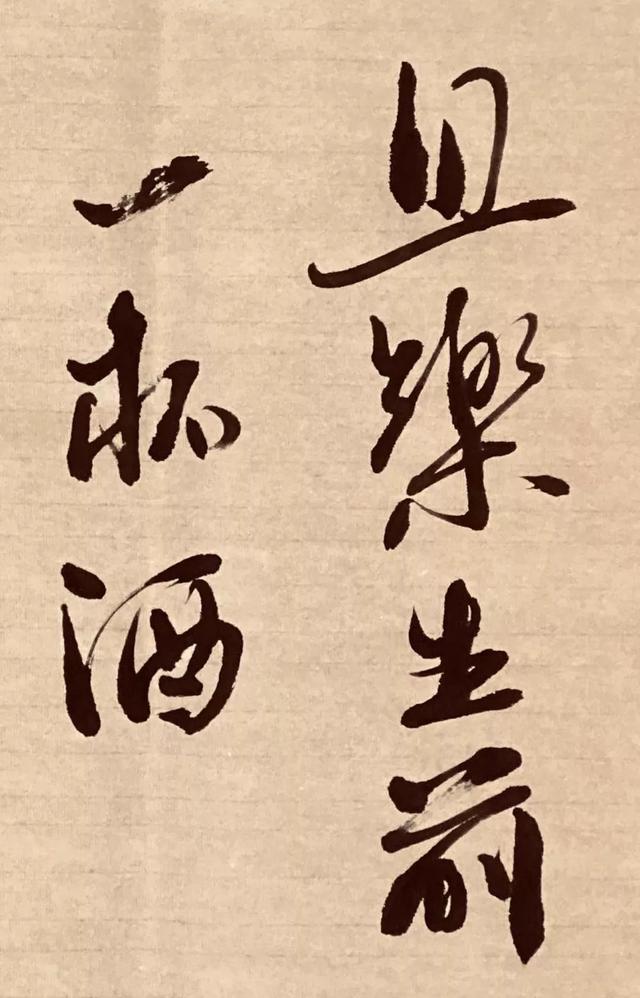 且樂生前
一杯酒